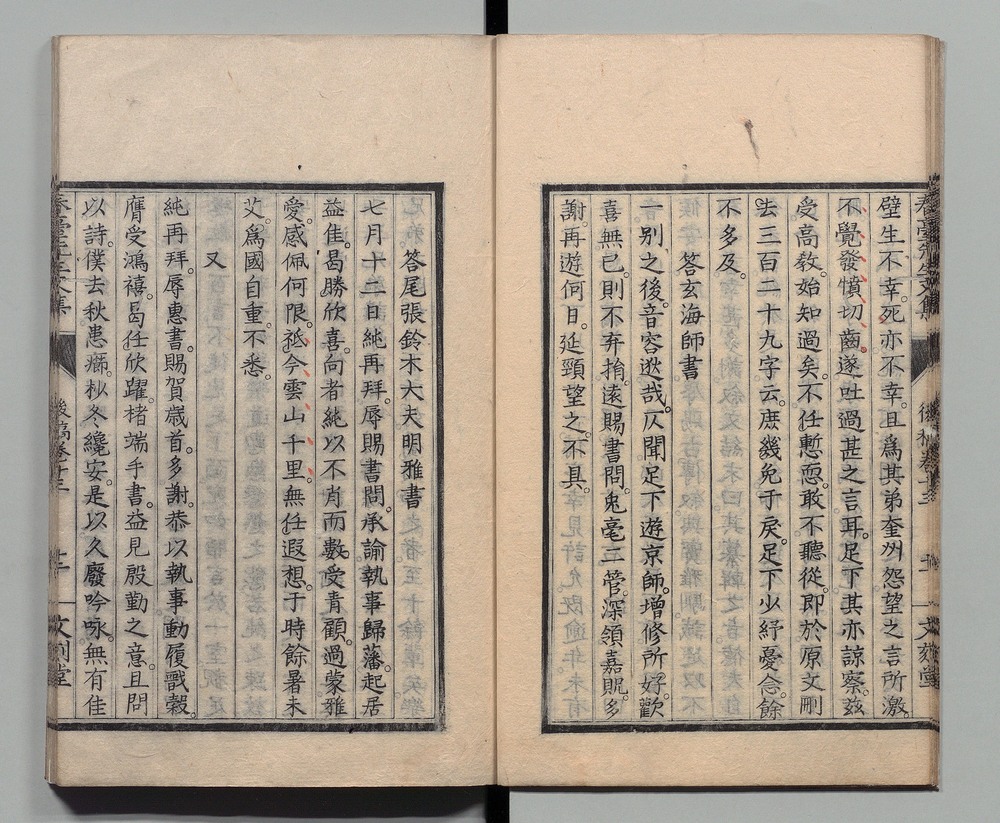 壁生不幸。死亦不幸。且爲其弟奎州怨望之言所激。
不覺發憤切齒。遂吐過甚之言耳。足下其亦諒察。茲
受高教。始知過矣。不任慙恧。敢不聽從。即於原文刪
去三百二十九字云。庶幾免于戾。足下少紓憂念。餘
不多及。
答玄海師書
一別之後。音容逖哉。仄聞足下遊京師。增修所好。歡
喜無已。則不弃捐。遠賜書問。兔毫二管。深領嘉貺。多
謝。再遊何日。延頸望之。不具。
答尾張鈴木大夫明雅書
七月十二日純再拜。辱賜書問。承諭執事歸藩。起居
益佳。曷勝欣喜。向者純以不肖而數受青顧。過蒙雅
愛。感佩何限。祗今雲山千里。無任遐想。于時餘暑未
艾。爲國自重。不悉。
又
純再拜。辱惠書。賜賀歲首。多謝。恭以執事動履戩穀。
膺受鴻禧。曷任欣躍。楮端手書。益見殷勤之意。且問
以詩。僕去秋患癤。杪冬纔安。是以久廢吟咏。無有佳
後稿卷十三
文刻堂